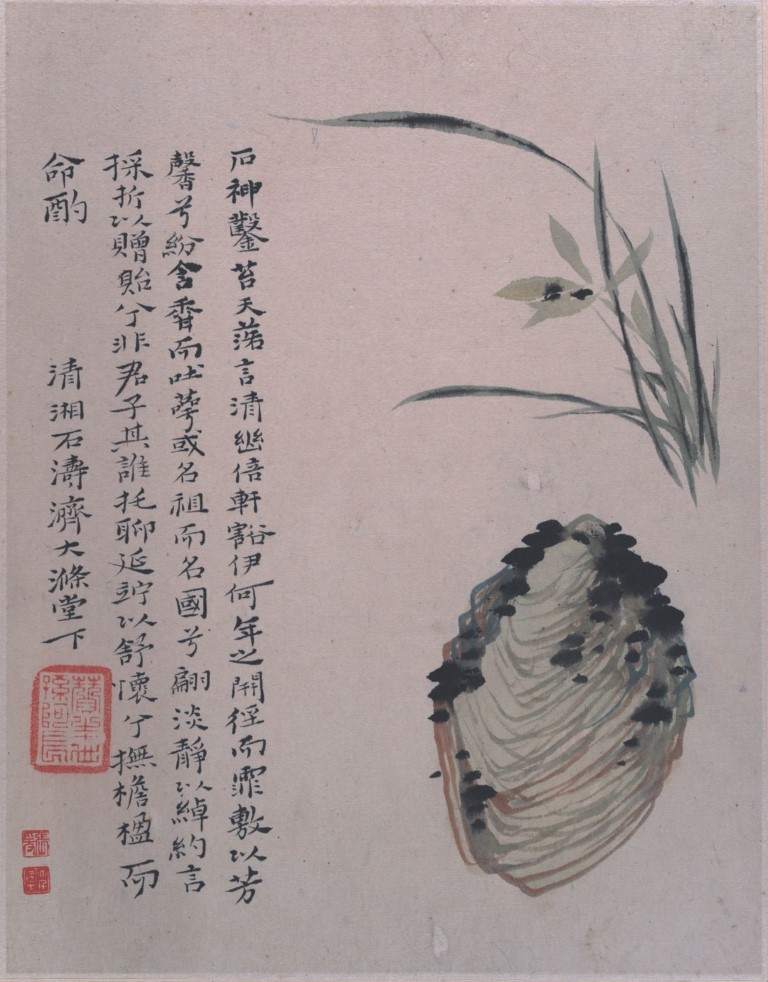 石神鑿苔天蕩言清幽倍軒豁伊何年之開徑而霏敷以芳
馨兮紛含香而吐萼或名祖而名國兮翩淡靜以綽約言
採折以贈貽兮非君子其誰托聊延竚以舒懷兮撫檐楹而
命酌
清湘石濤濟大滌堂下